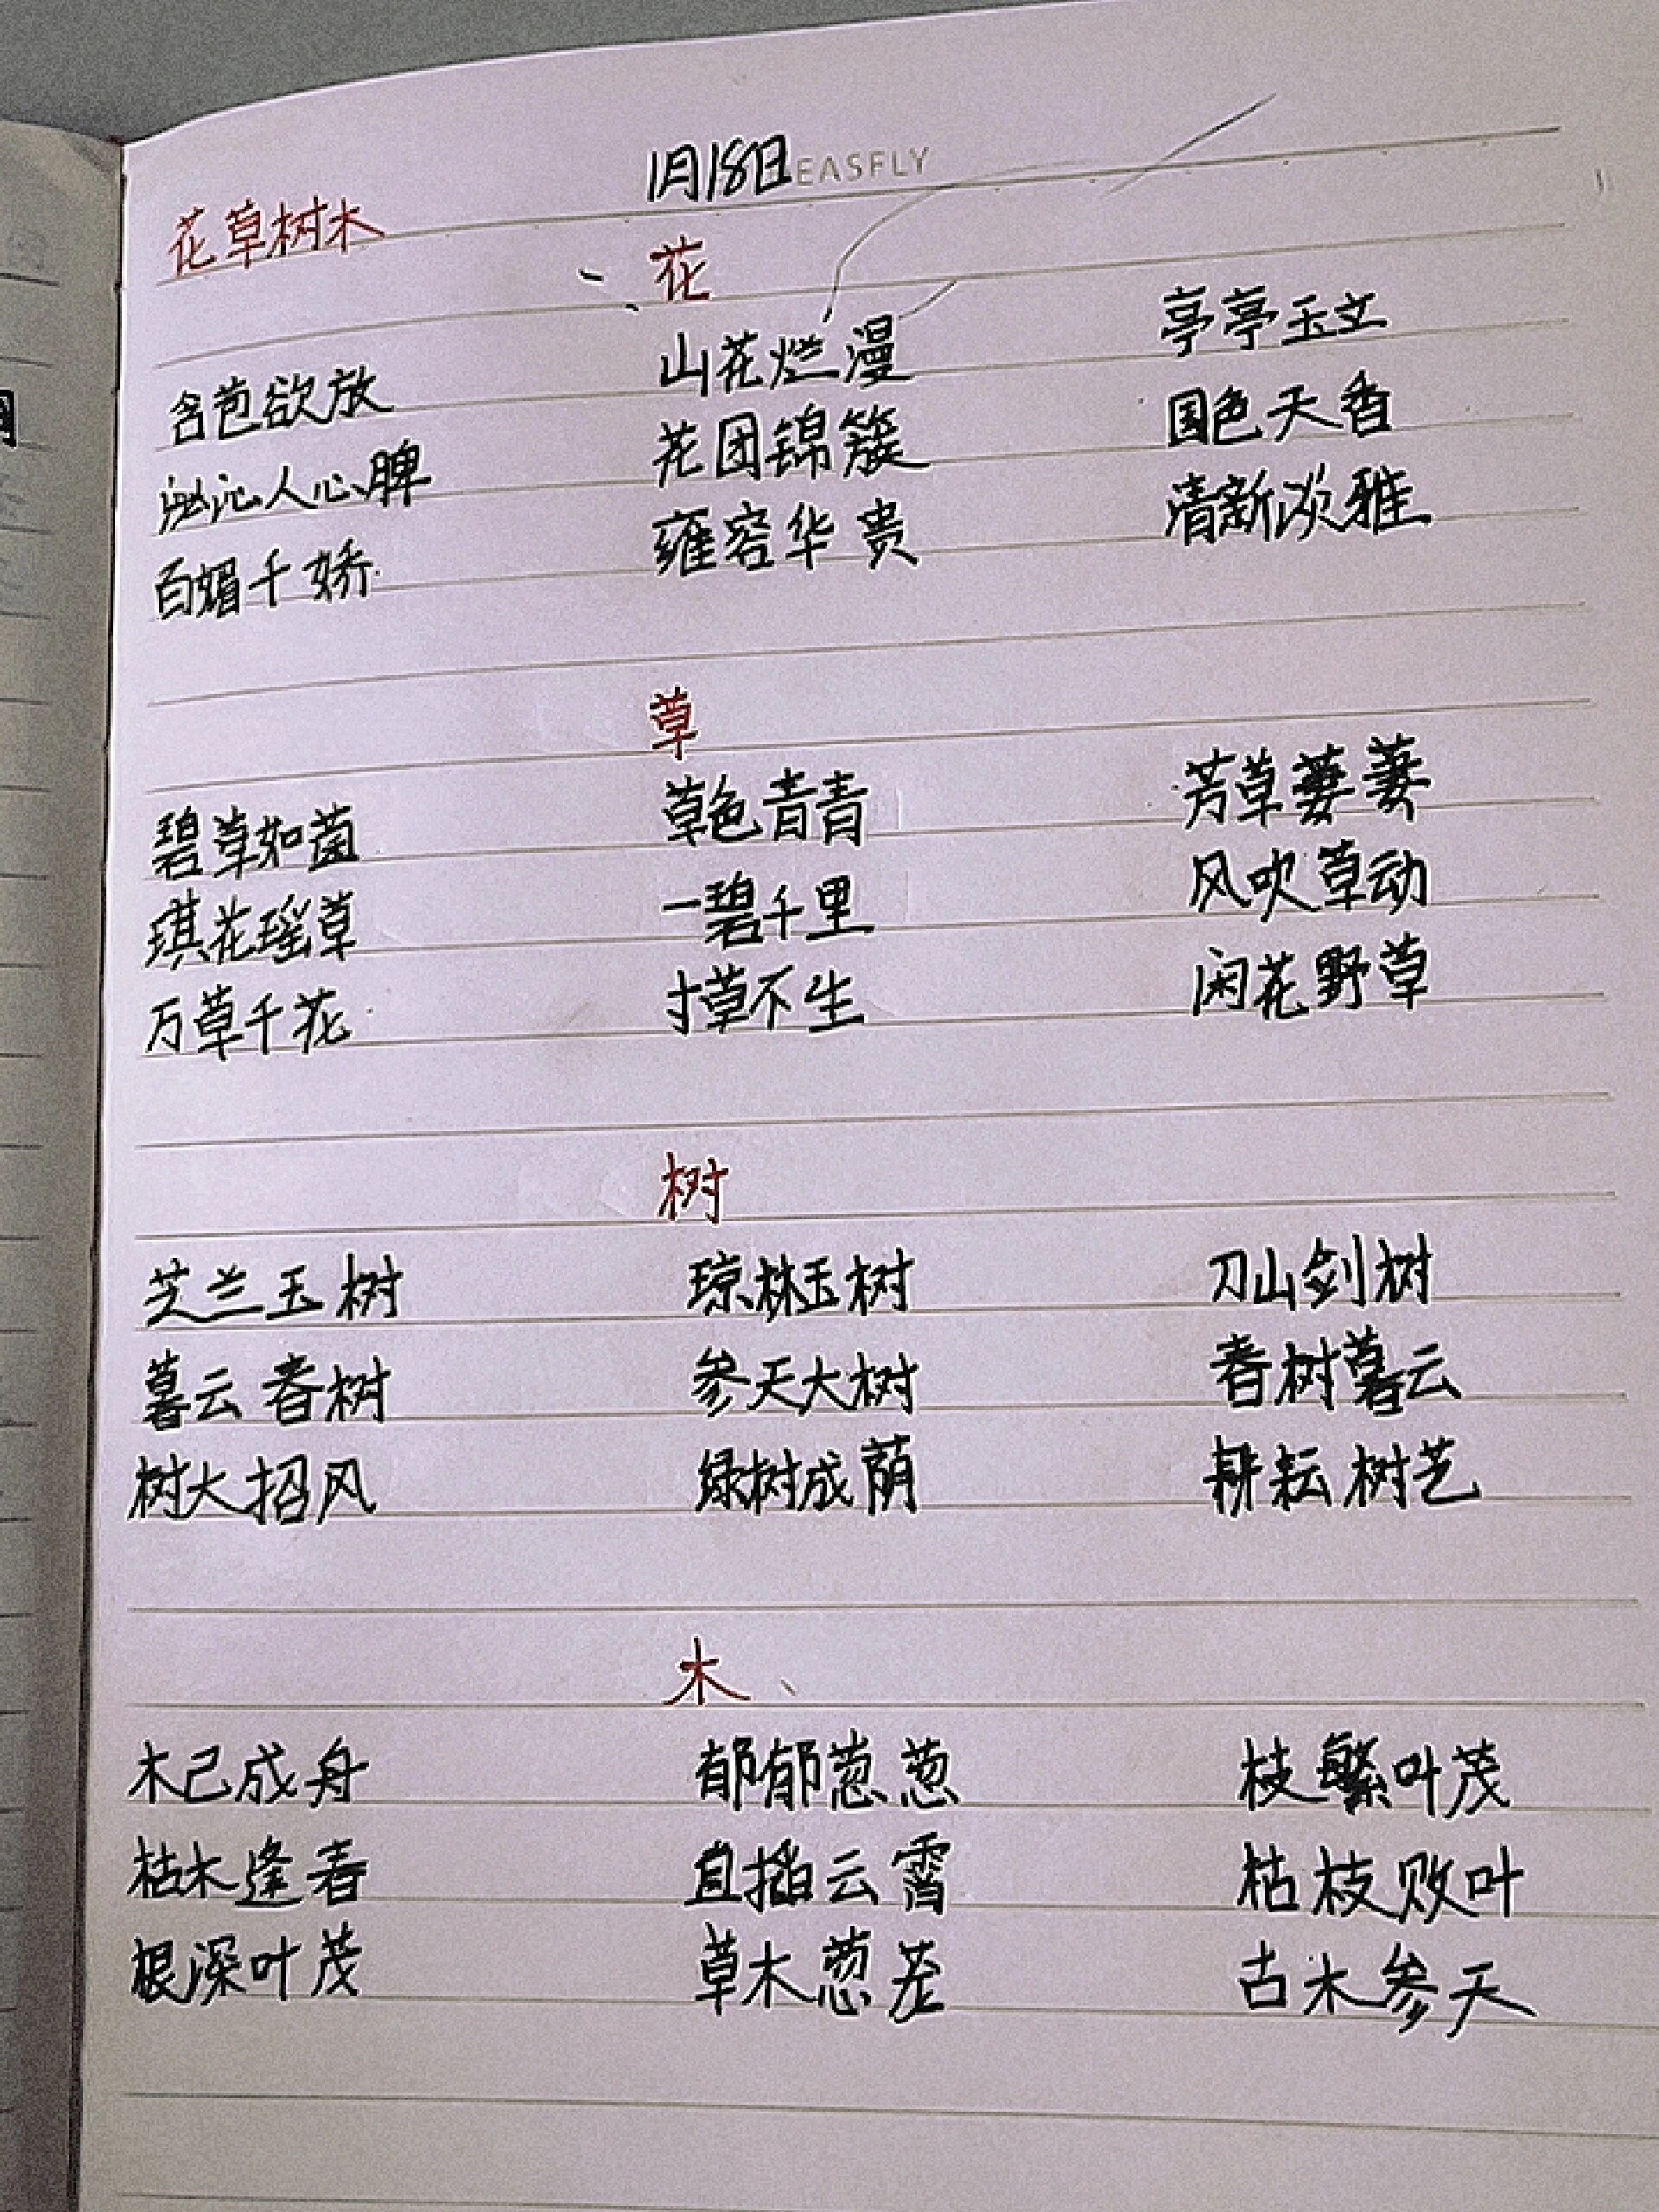 1月18日 EASFLY
花草树木
花
含苞欲放 山花烂漫 亭亭玉立
沁人心脾 花团锦簇 国色天香
百媚千娇 雍容华贵 清新淡雅
草
碧草如茵 草色青青 芳草萋萋
琪花瑶草 一碧千里 风吹草动
万草千花 寸草不生 闲花野草
树
芝兰玉树 琼林玉树 刀山剑树
暮云春树 参天大树 春树暮云
树大招风 绿树成荫 耕耘树艺
木
木已成舟 郁郁葱葱 枝繁叶茂
枯木逢春 直插云霄 枯枝败叶
根深叶茂 草木葱茏 古木参天